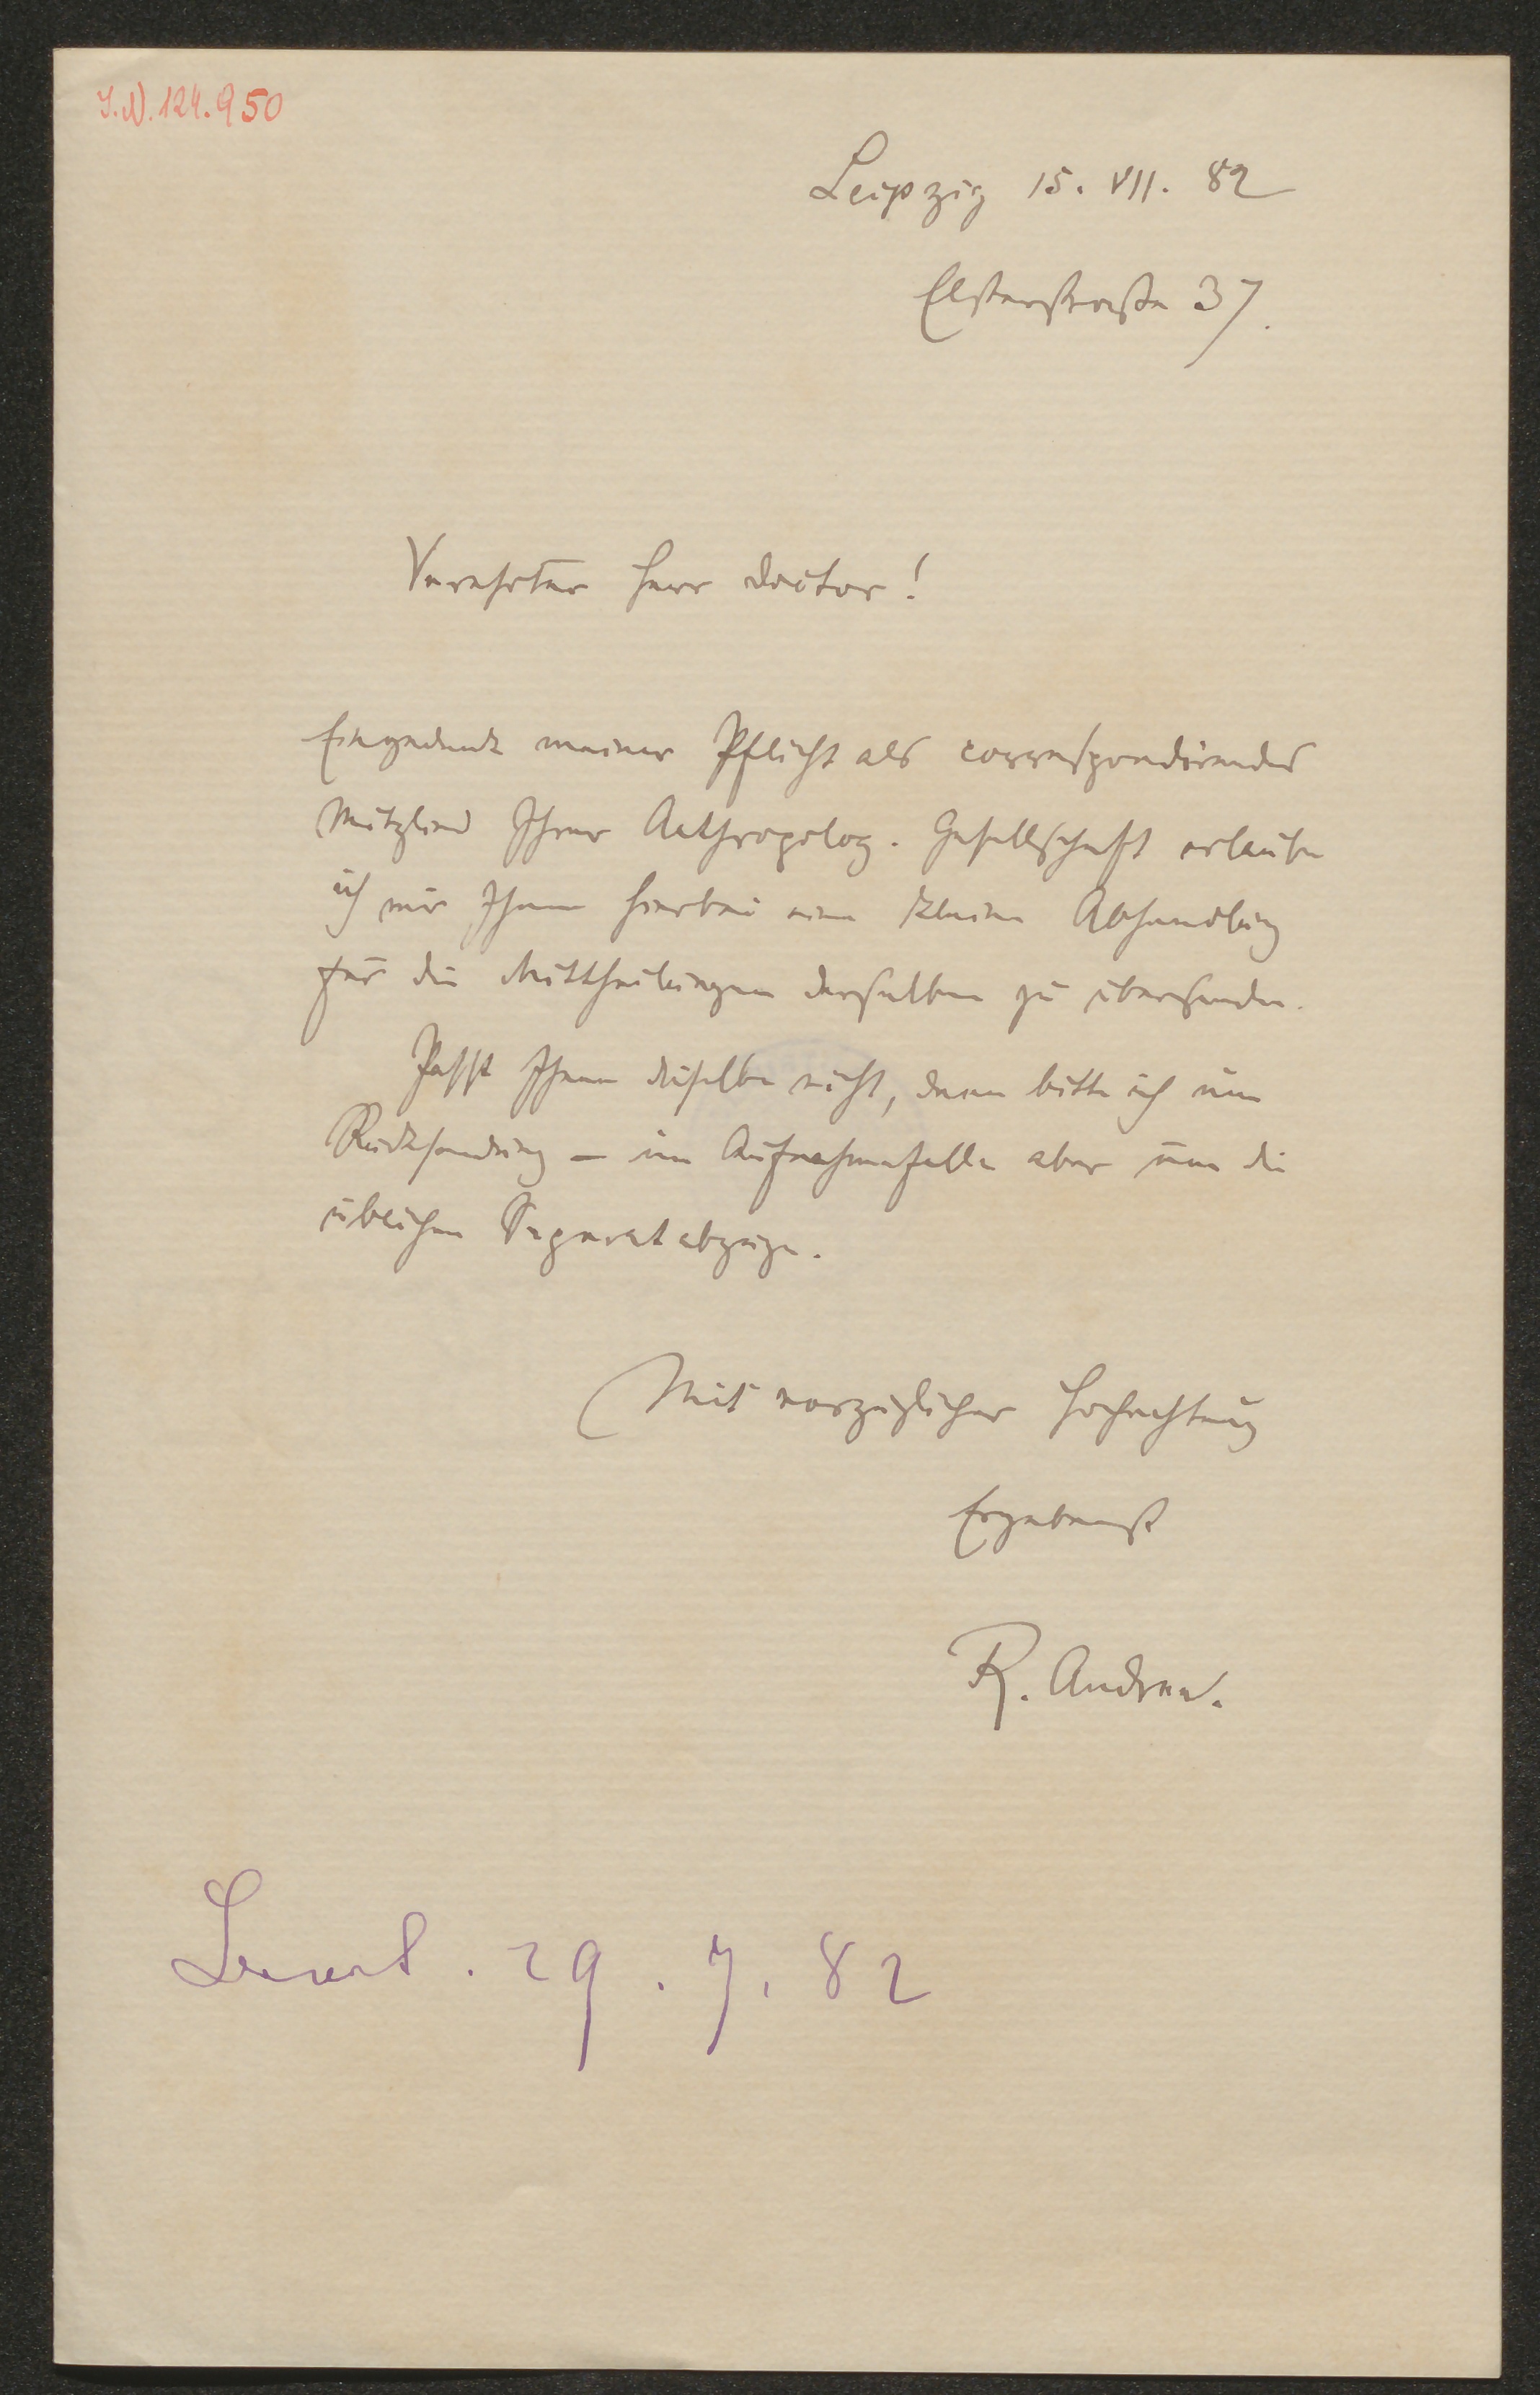 I.N. 124.950
Leipzig 15. VII. 82
Elsterstraße 37.
Verehrter Herr Doctor!
Eingedenk meiner Pflicht als correspondirendes
Mitglied Ihrer Anthropolog. Gesellschaft erlaube
ich mir Ihnen hierbei eine kleine Abhandlung
für die Mittheilungen derselben zu übersenden.
Passt Ihnen dieselbe nicht, dann bitte ich um
Rücksendung – im Aufnahmefalle aber um die
üblichen Separatabzüge.
Mit vorzüglicher Hochachtung
Ergebenst
R. Andree.
29. 7. 82